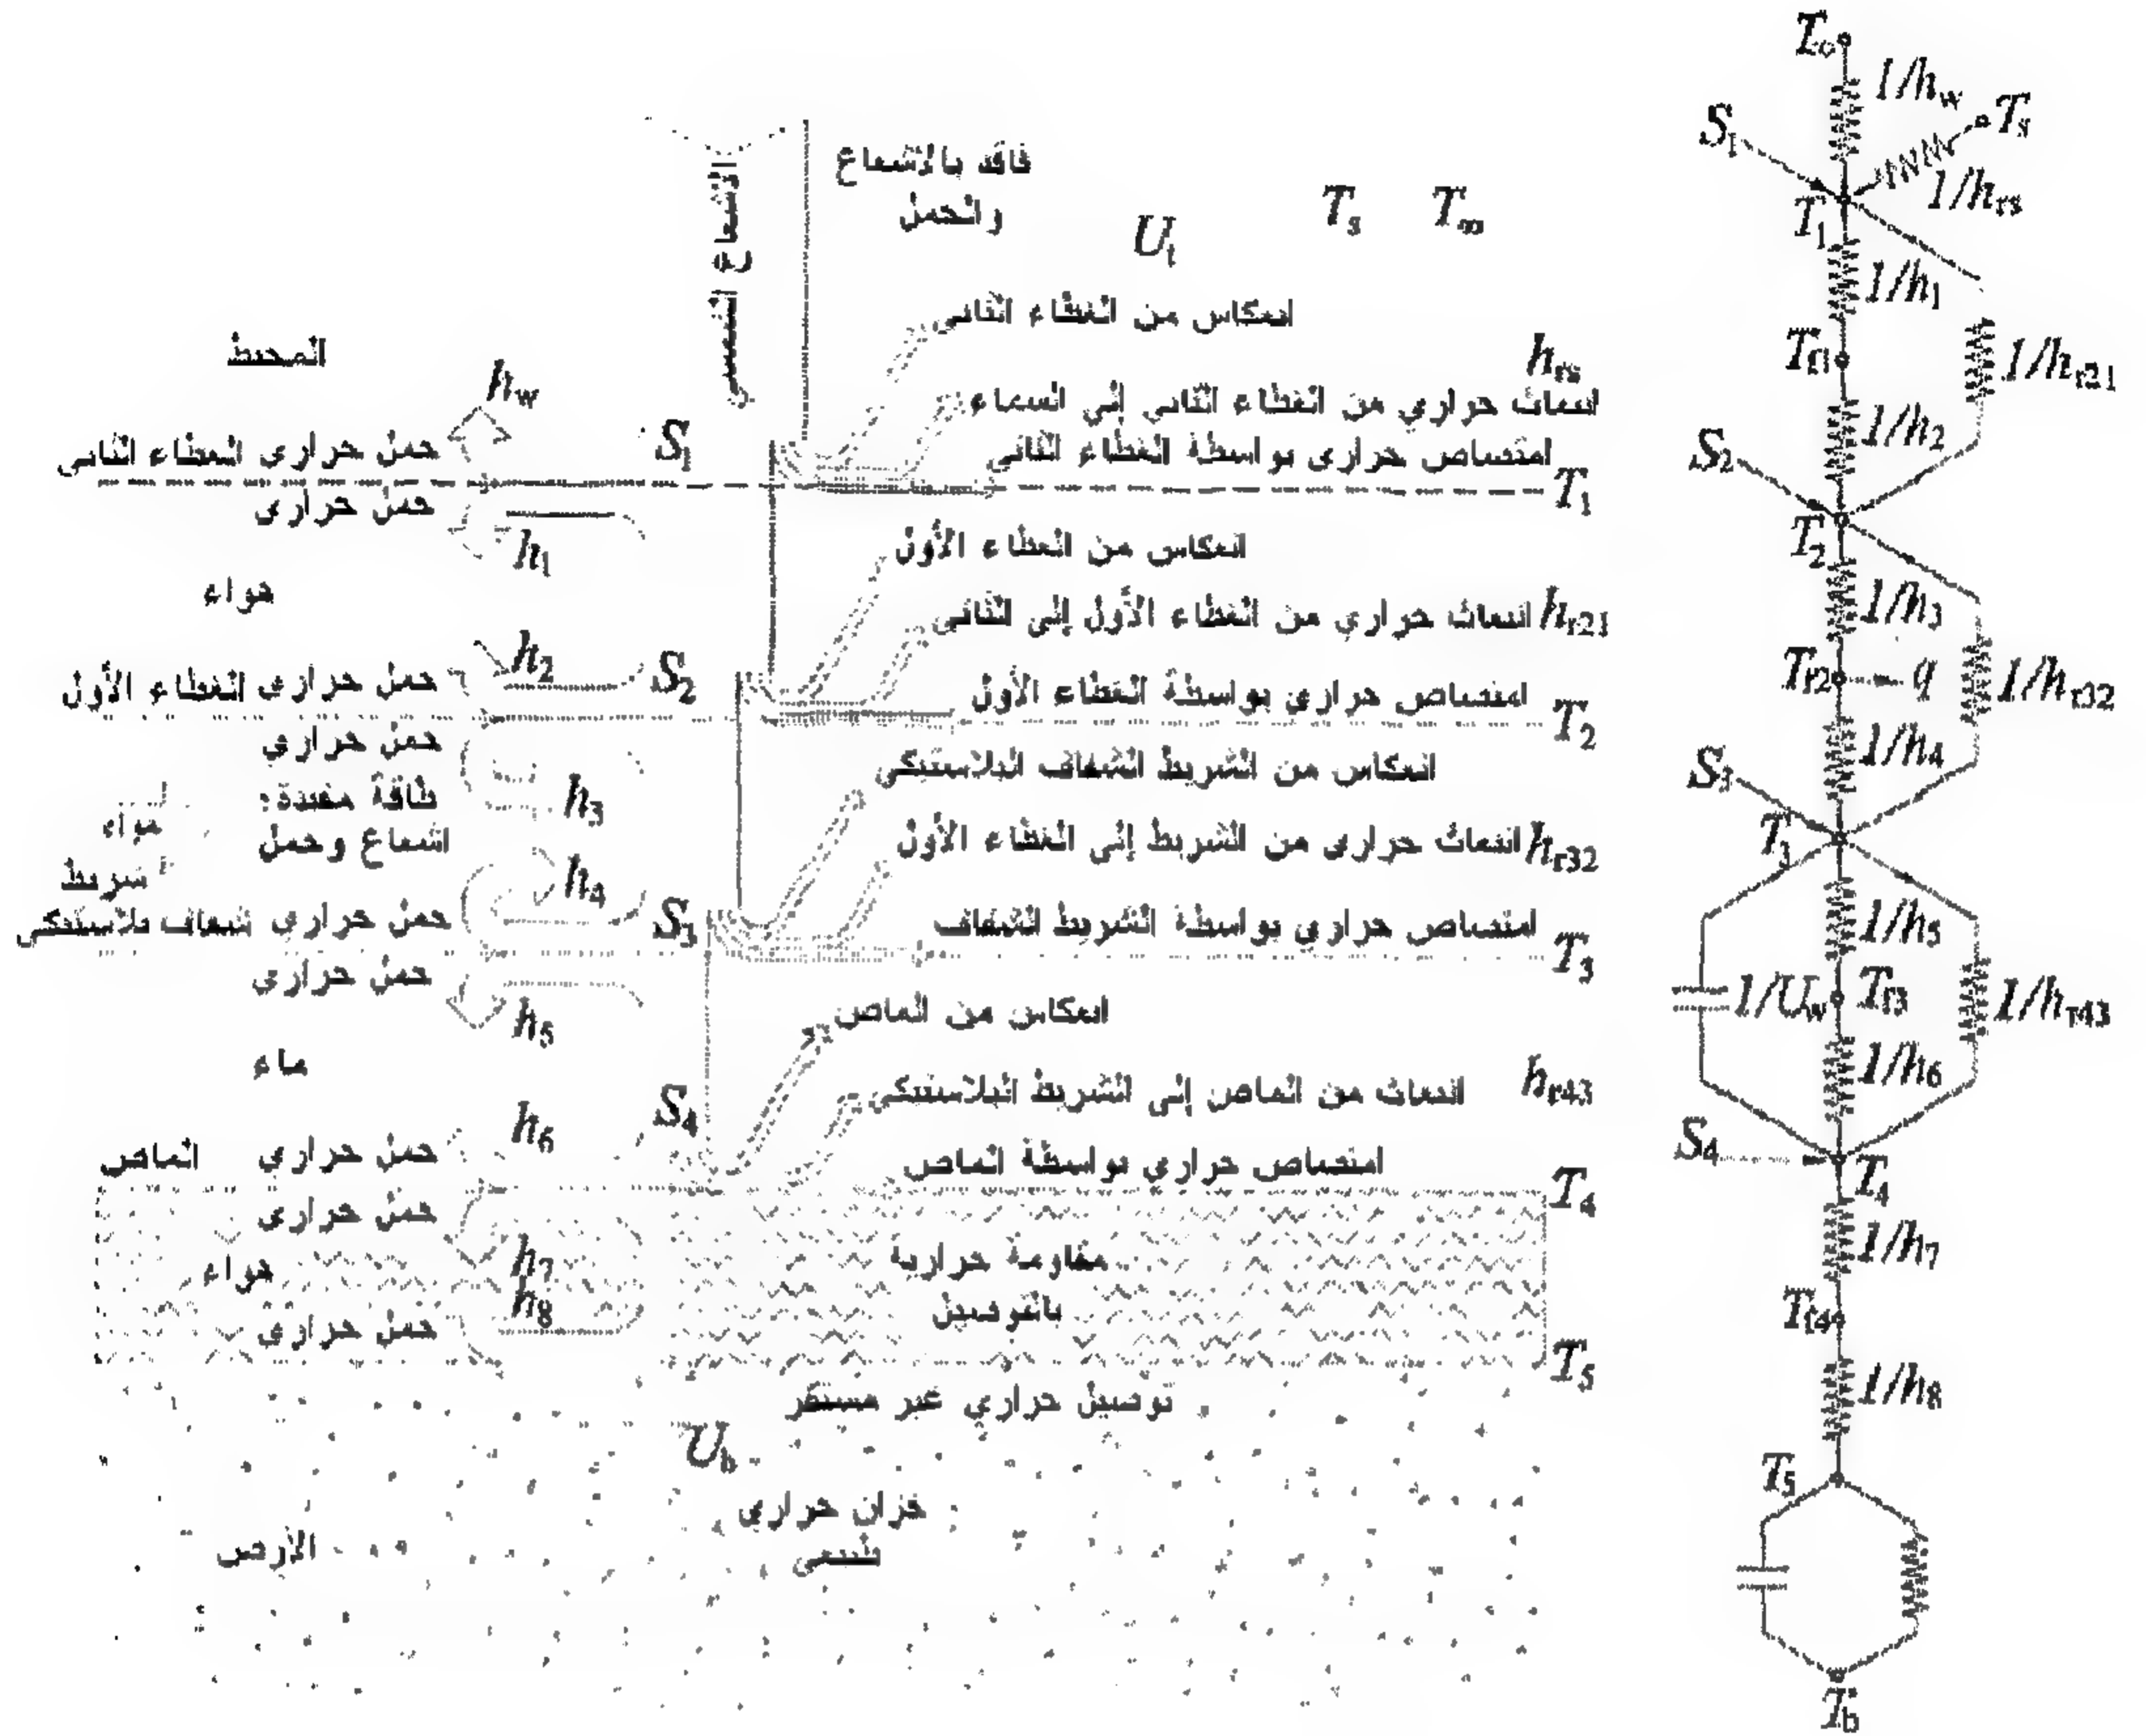 فاقد بالاشعاع
والحمل
الاشعاع الشمسي
U_t
T_s T_∞
انعكاس من الغطاء الثاني
المحيط
h_w
h_rs
انبعاث حراري من الغطاء الثاني إلى السماء
حمل حراري الغطاء الثاني
S_1
امتصاص حراري بواسطة الغطاء الثاني
T_1
حمل حراري
h_1
انعكاس من الغطاء الأول
هواء
انبعاث حراري من الغطاء الأول إلى الثاني h_r21
حمل حراري الغطاء الأول
h_2
S_2
امتصاص حراري بواسطة الغطاء الأول
T_2
حمل حراري
انعكاس من الشريط الشفاف البلاستيكي
طاقة مفيدة:
اشعاع وحمل
h_3
هواء
انبعاث حراري من الشريط إلى الغطاء الأول h_r32
h_4
شريط
شفاف بلاستيكي
حمل حراري
S_3
امتصاص حراري بواسطة الشريط الشفاف
T_3
حمل حراري
h_5
انعكاس من الماص
ماء
انبعاث من الماص إلى الشريط البلاستيكي h_r43
h_6
S_4
الماص حمل حراري
امتصاص حراري بواسطة الماص
T_4
حمل حراري
هواء
h_7
مقاومة حرارية
بالتوصيل
h_8
حمل حراري
T_5
توصيل حراري غير مستقر
U_b
خزان حراري
طبيعي
الأرض
T_∞
1/h_w
T_s
S_1
1/h_rs
T_1
1/h_1
T_f1
1/h_r21
1/h_2
S_2
T_2
1/h_3
T_f2
q
1/h_r32
1/h_4
S_3
T_3
1/h_5
1/U_w
T_f3
1/h_r43
1/h_6
S_4
T_4
1/h_7
T_f4
1/h_8
T_5
T_b